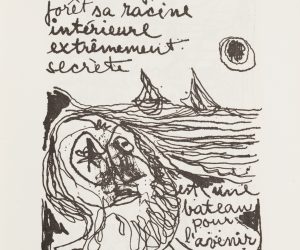 forêt sa racine
intérieure
extrêmement
secrète
est une
bateau
pour
l'avenir